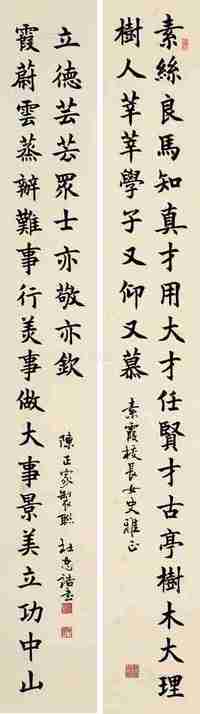 素絲良馬知真才用大才任賢才古亭樹木大理
樹人莘莘學子又仰又慕
素霞校長女史雅正
霞蔚雲蒸辦難事行羙事做大事景美立功中山
立德芸芸眾士亦敬亦欽
陳正家製聯 杜忠誥書